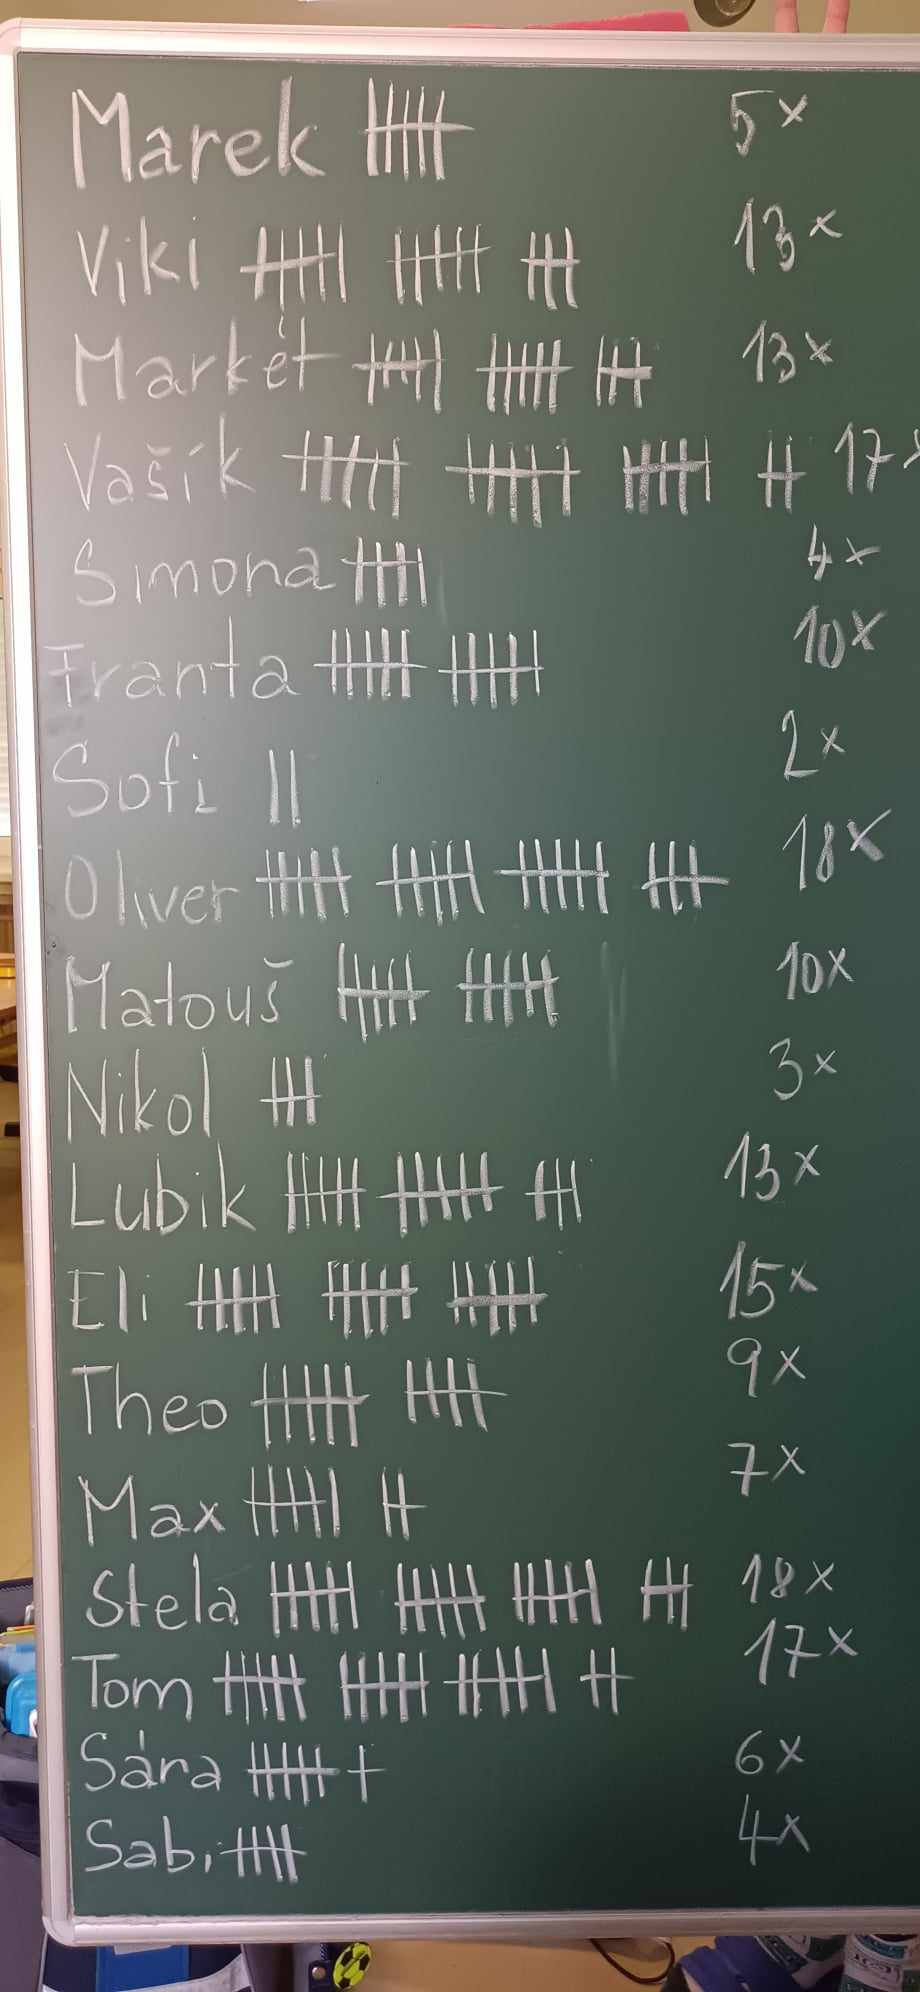 Marek 5x
Viki 13x
Markét 13x
Vašík 17x
Simona 4x
Franta 10x
Sofi 2x
Oliver 18x
Matouš 10x
Nikol 3x
Lubik 13x
Eli 15x
Theo 9x
Max 7x
Stela 18x
Tom 17x
Sára 6x
Sabi 4x